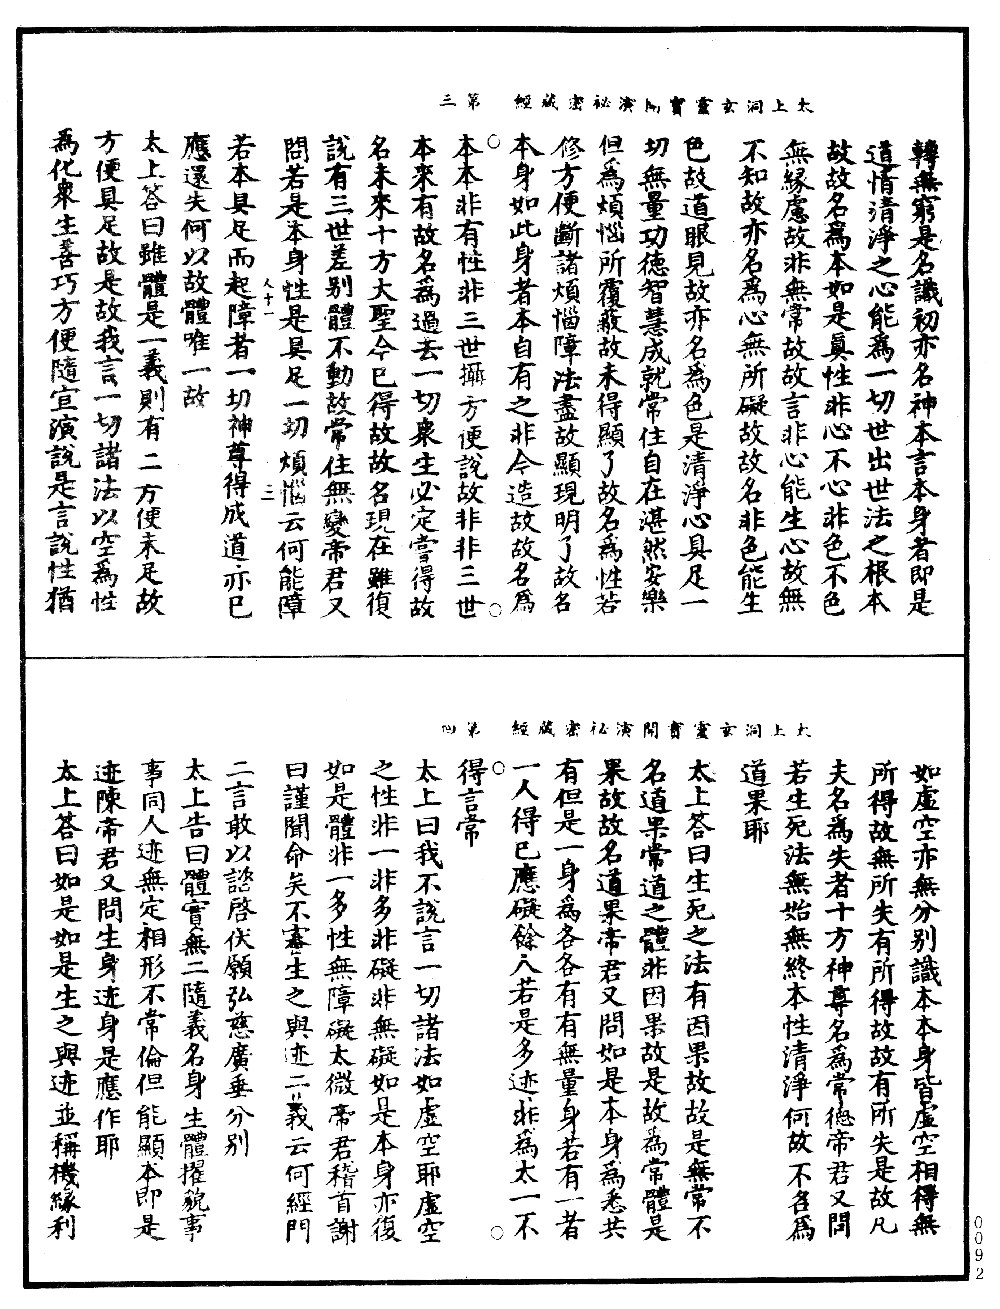 太上洞玄靈寶開演秘密藏經　第三
轉無窮是名識初亦名神本言本身者即是
道情清淨之心能為一切世出世法之根本
故故名為本如是真性非心不心非色不色
無緣慮故非無常故故言非心能生心故無
不知故亦名為心無所礙故故名非色能生
色故道眼見故亦名為色是清淨心具足一
切無量功德智慧成就常住自在湛然安樂
但為煩惱所覆蔽故未得顯了故名為性若
修方便斷諸煩惱障法盡故顯現明了故名
本身如此身者本自有之非今造故故名為
本本非有性非三世攝方便說故非非三世
本來有故名為過去一切衆生必定當得故
名未來十方大聖今已得故故名現在雖復
說有三世差別體不動故常住無變帝君又
問若是本身性是具足一切煩惱云何能障
人十一　三
若本具足而起障者一切神尊得成道亦已
應還失何以故體唯一故
太上答曰雖體是一義則有二方便未足故
方便具足故是故我言一切諸法以空為性
為化衆生善巧方便隨宜演說是言說性猶
太上洞玄靈寶開演秘密藏經　第四
如虛空亦無分別識本本身皆虛空相得無
所得故無所失有所得故故有所失是故凡
夫名為失者十方神尊名為常德帝君又問
若生死法無始無終本性清淨何故不名為
道果耶
太上答曰生死之法有因果故故是無常不
名道果常道之體非因果故是故為常體是
果故故名道果帝君又問如是本身為悉共
有但是一身為各各有有無量身若有一者
一人得已應礙餘人若是多迹非為太一不
得言常
太上曰我不說言一切諸法如虛空耶虛空
之性非一非多非礙非無礙如是本身亦復
如是體非一多性無障礙太微帝君稽首謝
曰謹聞命矣不審生之與迹二義云何經門
二言敢以諮啓伏願弘慈廣垂分別
太上告曰體實無二隨義名身生體擢貌事
事同人迹無定相形不常倫但能顯本即是
迹陳帝君又問生身迹身是應作耶
太上答曰如是如是生之與迹並稱機緣利
0092